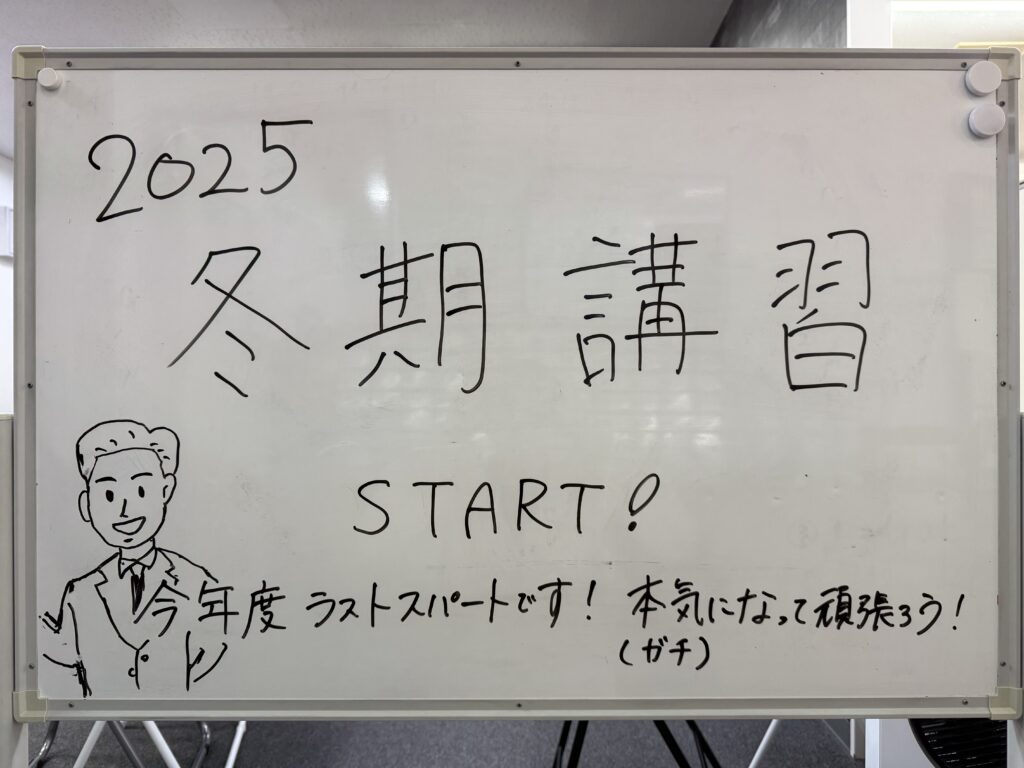 2025
冬期講習
START!
今年度ラストスパートです! 本気になって頑張ろう!
(ガチ)